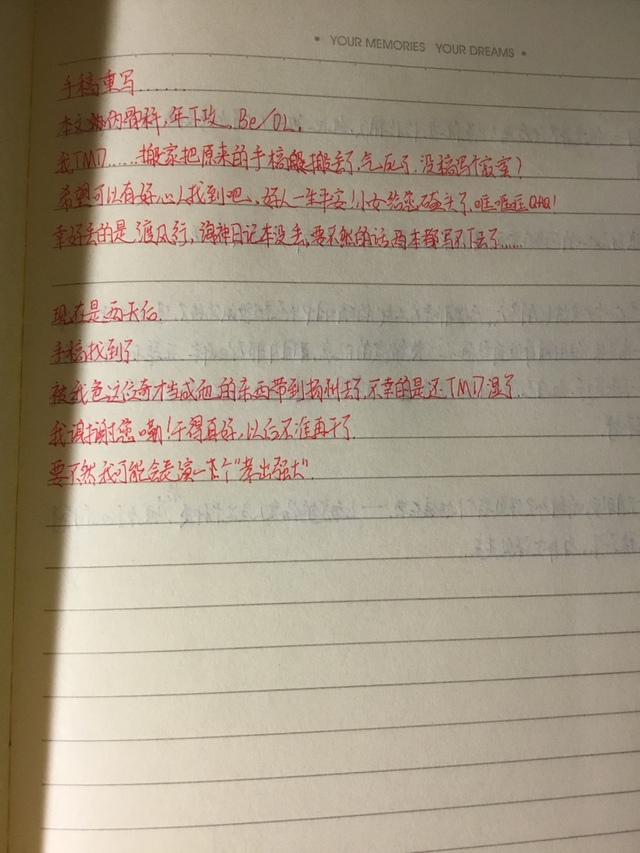 • YOUR MEMORIES YOUR DREAMS •
手稿重写……
本文 伪骨科,年下攻。Be/OL。
我TMD……搬家把原来的手稿 搬丢了,气死了,没稿写个寂寞?
希望可以有好心人找到吧、好人一生平安!小女给您磕头了,哐哐哐QAQ!
幸好丢的是 渡风行,海神日记本没丢,要不然的话两本都写不下去了……
现在是两天后
手稿找到了
被我爸这位奇才当成他的东西带到扬州去了,不幸的是还TMD湿了
我谢谢您嘞!干得真好,以后不准再干了
要不然我可能会表演一个"孝出强大"